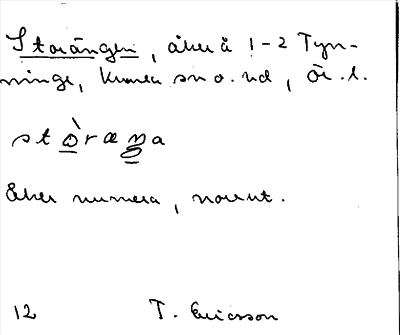 Storängen, åker å 1-2 Tyn-
ninge, Kumla sn o. hd, Ör. l.
stòræŋa
Åker numera, norrut.
12 T. Ericsson